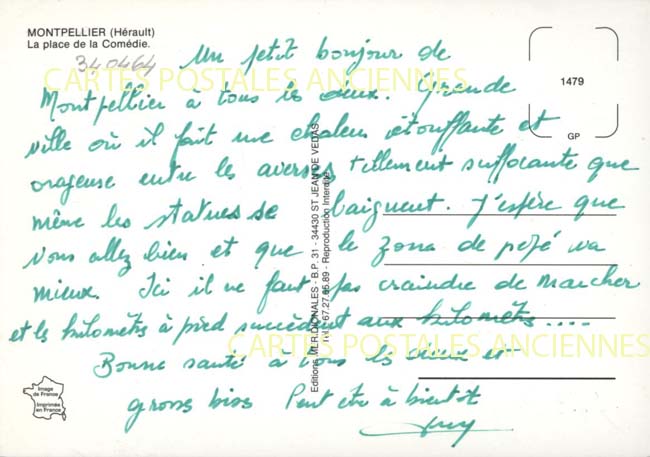 MONTPELLIER (Hérault)
La place de la Comédie.
340464
CARTES POSTALES ANCIENNES
1479
GP
Un petit bonjour de
Montpellier a tous les deux. Grande
ville où il fait une chaleur étouffante et
orageuse entre les averses tellement suffocante que
même les statues se baignent. J'espère que
vous allez bien et que le zona de pépé va
mieux. Ici il ne faut pas craindre de marcher
et les kilomètres à pied succèdent aux kilomètres....
Bonne santé à vous les deux et
grosses bises Peut être à bientôt
Guy
CARTES POSTALES ANCIENNES
Editions MERIDIONALES - B.P. 31 - 34430 ST JEAN DE VEDAS
Tél. 67.27.85.89 - Reproduction Interdite
Image
de France
Imprimée
en France